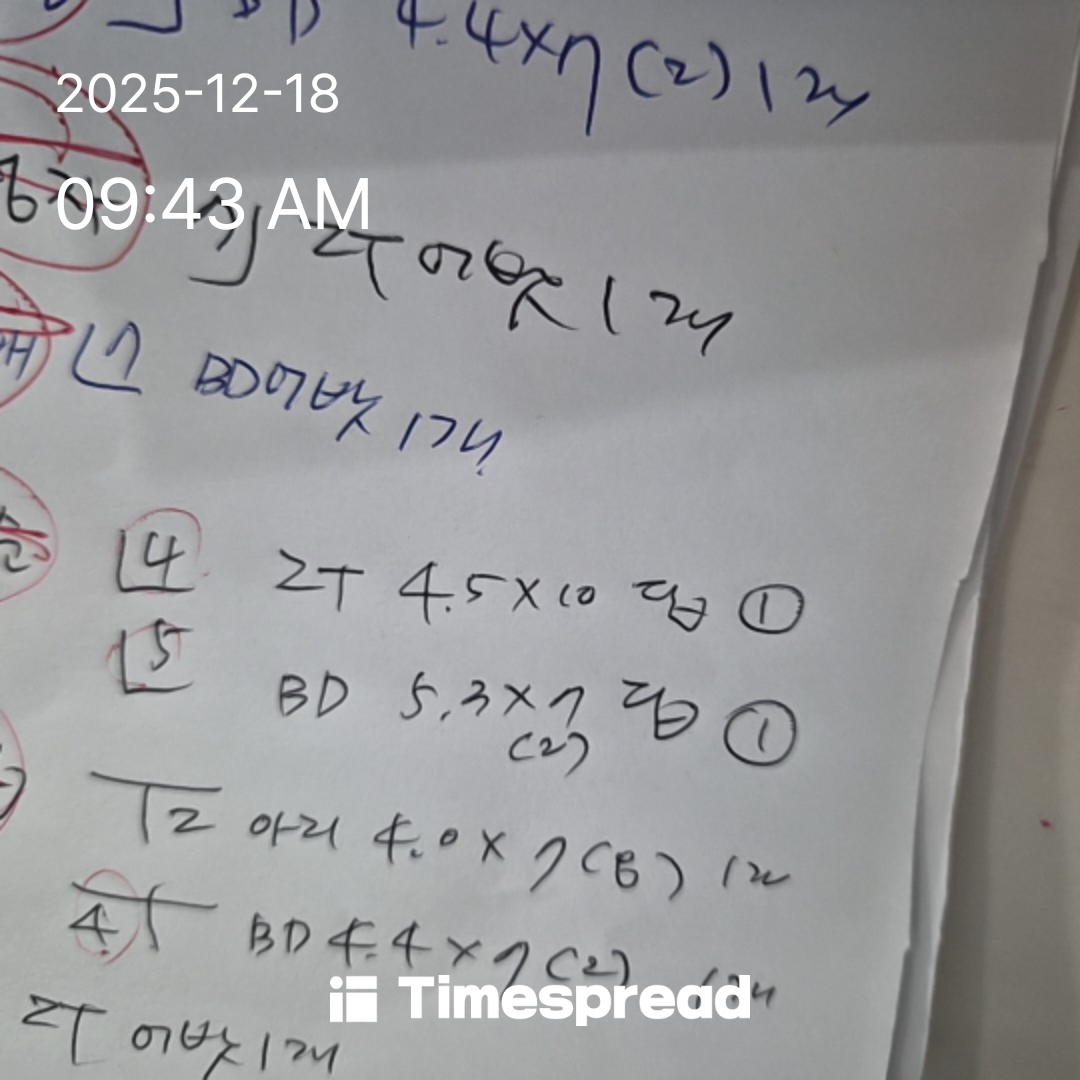 BD 4.4×7 (2) 1개
2025-12-18
09:43 AM
ZT 어벗 1개
BD 어벗 1개
4 ZT 4.5×10 딥 ①
5 BD 5.3×7 딥 ①
(2)
2 아리 4.0×7(B) 1개
4 BD 4.4×7(2) 1개
Timespread
ZT 어벗 1개